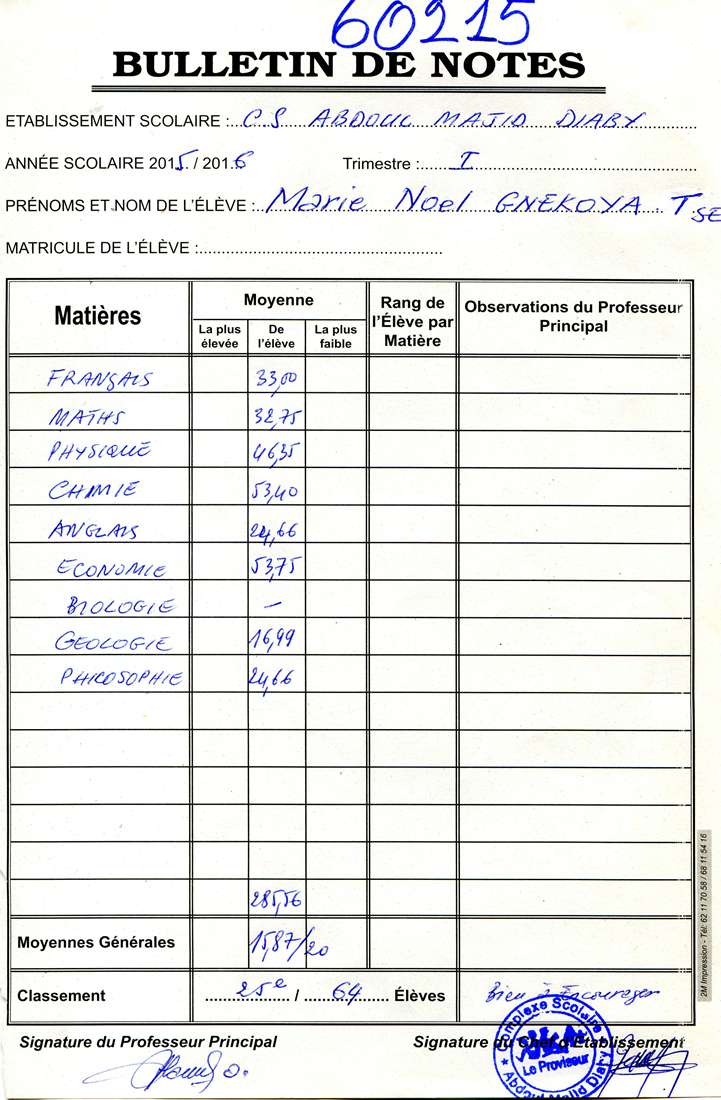 60215
BULLETIN DE NOTES
ETABLISSEMENT SCOLAIRE : C S ABDOUL MAJID DIABY
ANNÉE SCOLAIRE 2015 / 2016 Trimestre : I
PRÉNOMS ET NOM DE L'ÉLÈVE : Marie Noel GNEKOYA : TSE
MATRICULE DE L'ÉLÈVE :
Matières Moyenne Rang de l'Élève par Matière Observations du Professeur Principal
La plus élevée De l'élève La plus faible
FRANÇAIS 33,00
MATHS 32,75
PHYSIQUE 46,35
CHIMIE 53,40
ANGLAIS 24,66
ECONOMIE 53,75
BIOLOGIE —
GEOLOGIE 16,99
PHILOSOPHIE 24,66
285,56
Moyennes Générales 15,87/20
Classement 25e / 64 Élèves Bien à Encourager
Signature du Professeur Principal Signature du Chef d'Etablissement
Complexe Scolaire
Le Proviseur
Abdoul Majid Diaby
2M Impression - Tél: 62 11 70 58 / 68 11 54 16